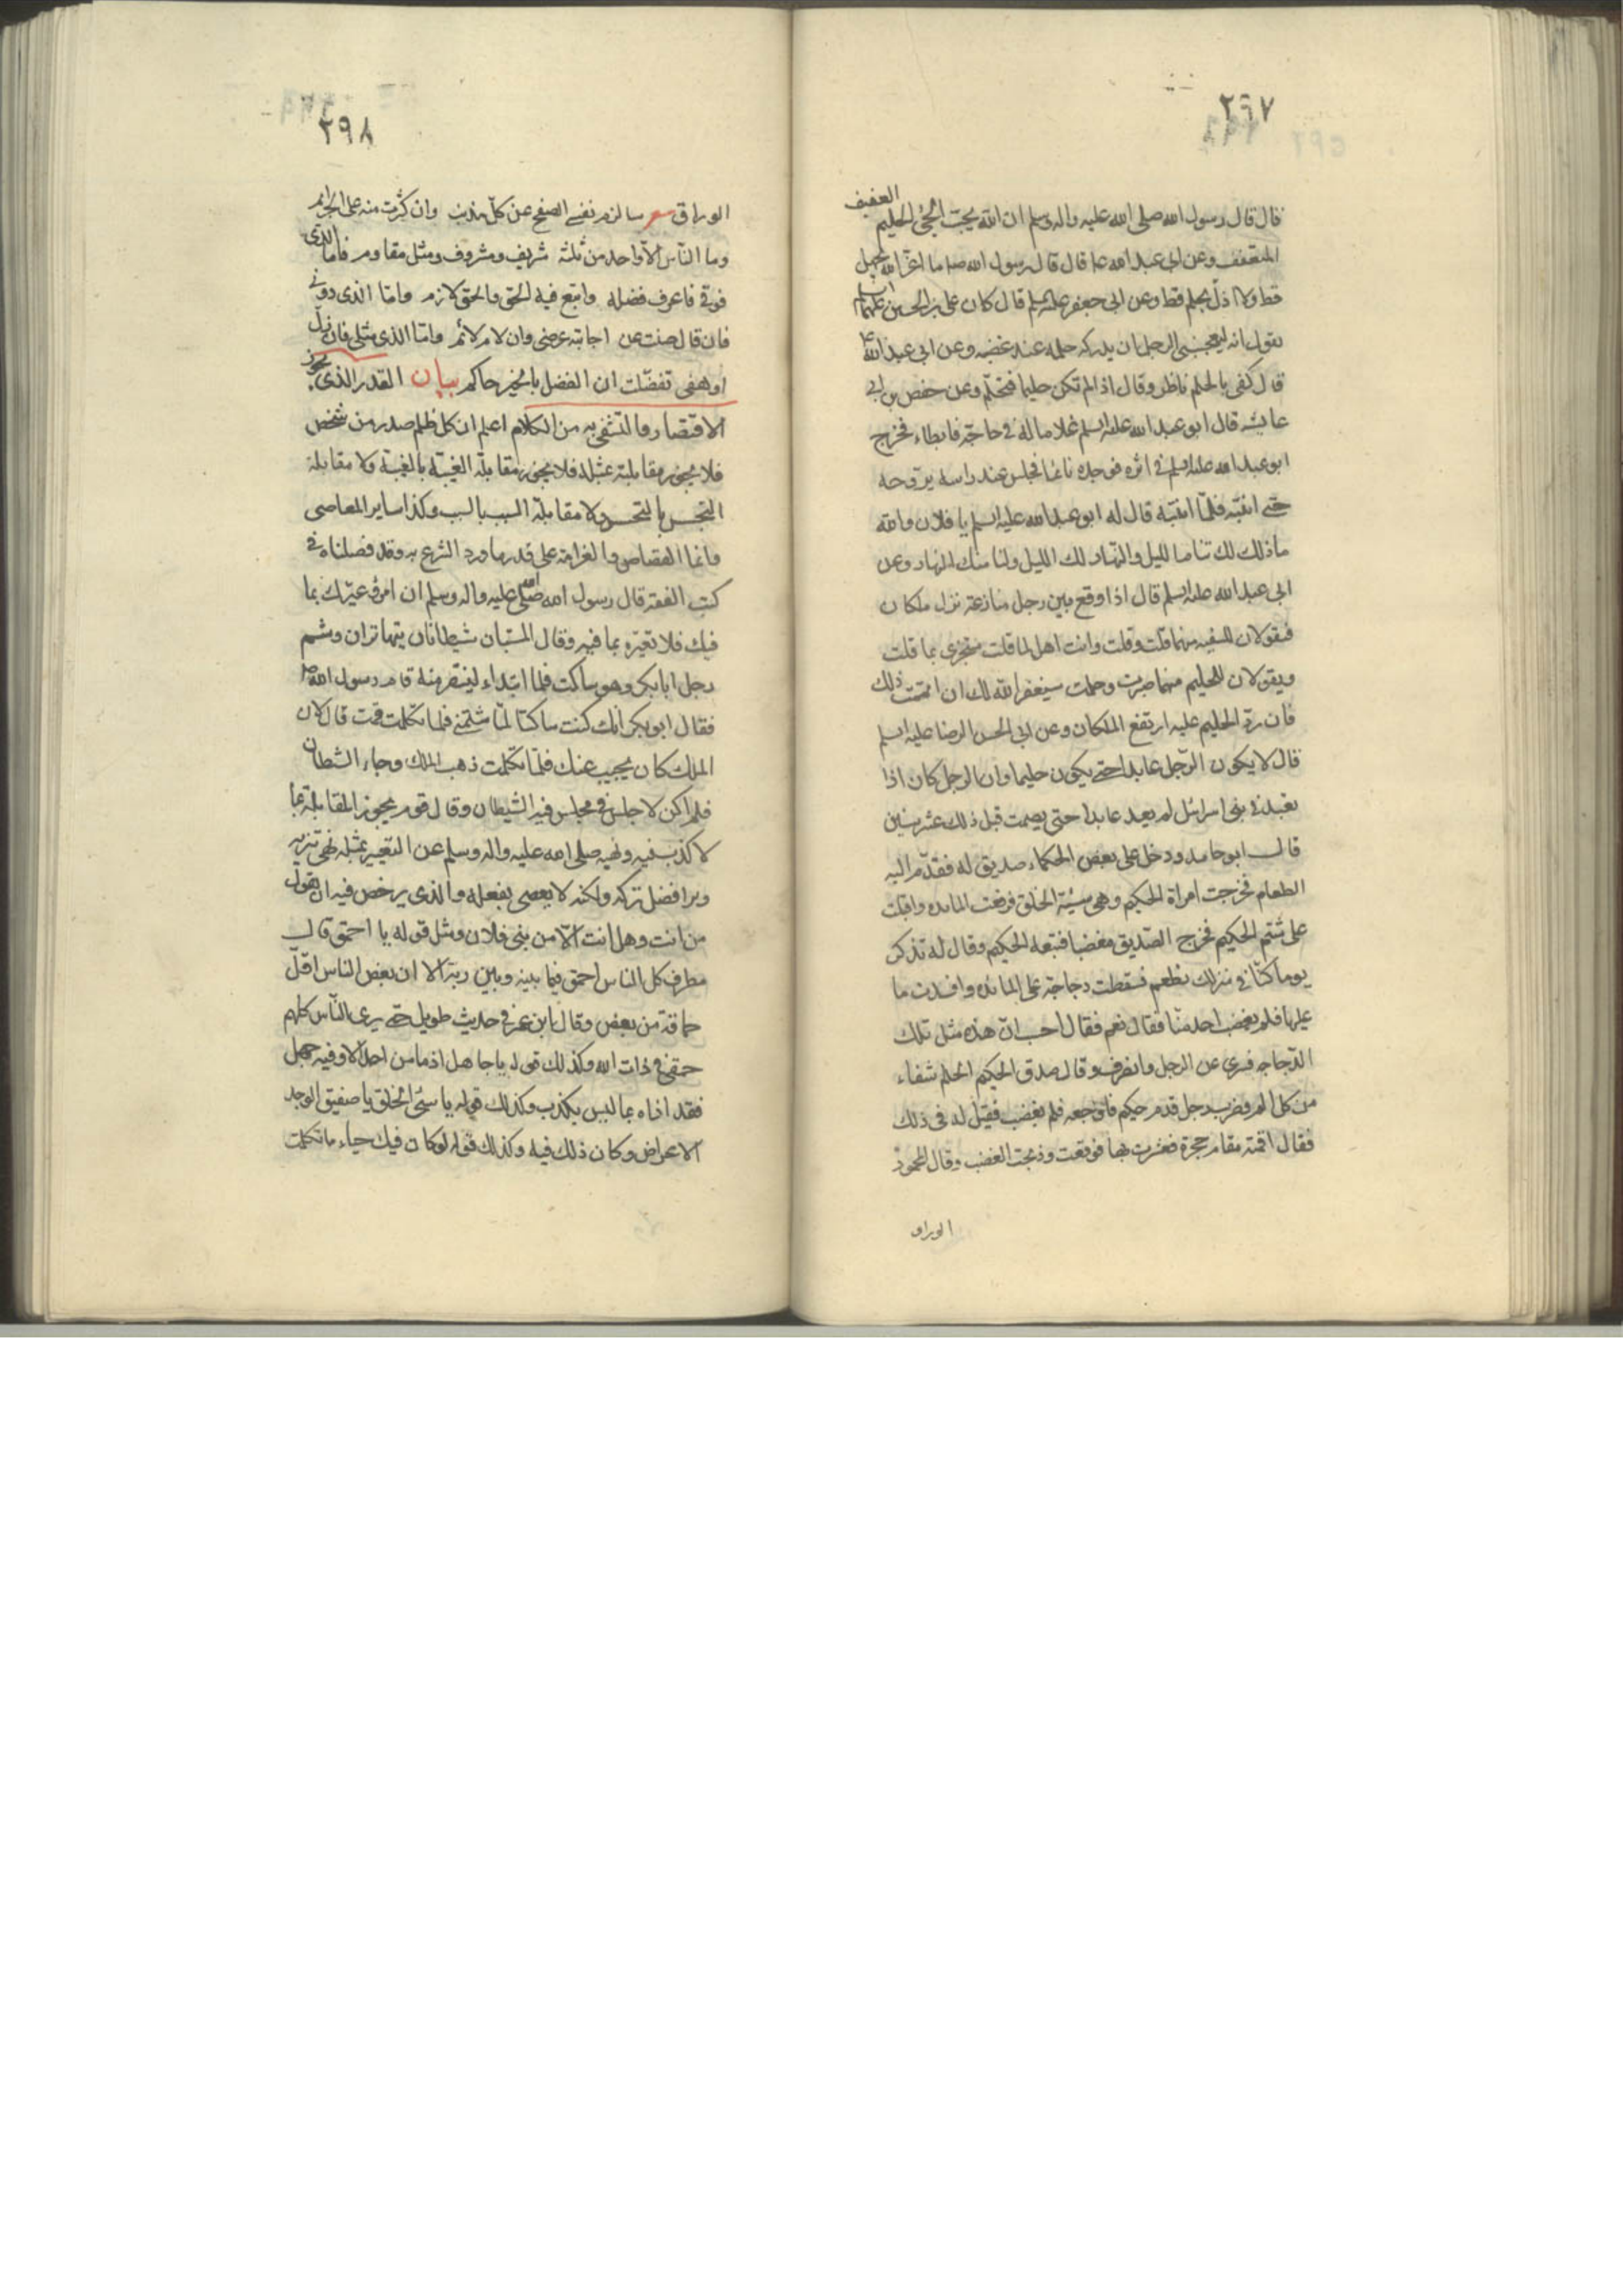 ٢٩٧
قال قال رسول الله صلى الله عليه واله وسلم ان الله يحب الحيى الحليم العفيف
المتعفف وعن ابى عبد الله ع قال قال رسول الله ص ما اعز الله بجهل
قط ولا اذل بحلم قط وعن ابى جعفر عليه السلم قال كان على بن الحسين عليهما السلم
يقول انه ليعجبنى الرجل ان يدركه حلمه عند غضبه وعن ابى عبد الله ع
قال كفى بالحلم ناظرا وقال اذا لم تكن حليما فتحلم وعن حفص بن ابى
عايشه قال ابو عبد الله عليه السلم غلاما له فى حاجة فابطاء فخرج
ابو عبد الله عليه السلم فى اثره فوجده نائما فجلس عند راسه يروحه
حتى انتبه فلما انتبه قال له ابو عبد الله عليه السلم يا فلان والله
ما ذلك لك تنام الليل والنهار لك الليل ولنا منك النهار وعن
ابى عبد الله عليه السلم قال اذا وقع بين رجل منازعة نزل ملكان
فيقولان للسفيه منهما قلت وقلت وانت اهل لما قلت ستجزى بما قلت
ويقولان للحليم منهما صبرت وحلمت سيغفر الله لك ان اتممت ذلك
فان رد الحليم عليه ارتفع الملكان وعن ابى الحسن الرضا عليه السلم
قال لا يكون الرجل عابدا حتى يكون حليما وان الرجل كان اذا
تعبد فى بنى اسرائل لم يعد عابدا حتى يصمت قبل ذلك عشر سنين
قال ابو حامد ودخل على بعض الحكماء صديق له فقدم اليه
الطعام فخرجت امراة الحكيم وهى سيئة الخلق فرفعت المايده واقبلت
على شتم الحكيم فخرج الصديق مغضبا فتبعه الحكيم وقال له تذكر
يوما كنا فى منزلك نطعم فسقطت دجاجة على المائده وافسدت ما
عليها فلم يغضب احد منا فقال نعم فقال احسب ان هذه مثل تلك
الدجاجه فسرى عن الرجل وانصرف وقال صدق الحكيم الحلم شفاء
من كل الم وضرب رجل قدم حكيم فاوجعه فلم يغضب فقيل له فى ذلك
فقال اقمته مقام حجرة فعثرت بها فوقعت وذبحت الغضب وقال المحمود
الوراق
٢٩٨
الوراق شعر سالزم نفسى الصفح عن كل مذنب وان كثرت منه على الجرائم
وما الناس الا واحد من ثلثة شريف ومشروف ومثل مقاوم فاما الذى
فوقى فاعرف فضله واتبع فيه الحق والحق لازم واما الذى دونى
فان قال صنت عن اجابته عرضى وان لام لائم واما الذى مثلى فان زل
او هفى تفضلت ان الفضل بالخير حاكم بيان القدر الذى يجوز
الاقتصار والتشفى به من الكلام اعلم ان كل ظلم صدر من شخص
فلا يجوز مقابلته بمثله فلا يجوز مقابلة الغيبة بالغيبة ولا مقابلة
التجسس بالتجسس ولا مقابلة السب بالسب وكذا ساير المعاصى
وانما القصاص والغرامة على قدر ما ورد الشرع به وقد فصلناه فى
كتب الفقه قال رسول الله صلى الله عليه واله وسلم ان امرؤ عيرك بما
فيك فلا تعيره بما فيه وقال المستبان شيطانان يتهاتران وشتم
رجل ابا بكر وهو ساكت فلما ابتداء لينتصر منه قام رسول الله ص
فقال ابو بكر انك كنت ساكتا لما شتمنى فلما تكلمت قمت قال لان
الملك كان يجيب عنك فلما تكلمت ذهب الملك وجاء الشيطان
فلم اكن لاجلس فى مجلس فيه الشيطان وقال قوم يجوز المقابلة بما
لا كذب فيه ونهيه صلى الله عليه واله وسلم عن التعيير بمثله نهى تنزيه
وبرافضل تركه ولكنه لا يعصى بفعله والذى يرخص فيه ان تقول
من انت وهل انت الا من بنى فلان ومثل قوله يا احمق قال
مطرف كل الناس احمق فيما بينه وبين ربه الا ان بعض الناس اقل
حماقة من بعض وقال ابن عمر فى حديث طويل حتى يرى الناس كلهم
حمقى فى ذات الله وكذلك قوله يا جاهل اذ ما من احد الا وفيه جهل
فقد اذاه بما ليس بكذب وكذلك قوله يا سيئ الخلق يا صفيق الوجه
الاعراض وكان ذلك فيه وكذلك قوله لو كان فيك حياء ما تكلمت